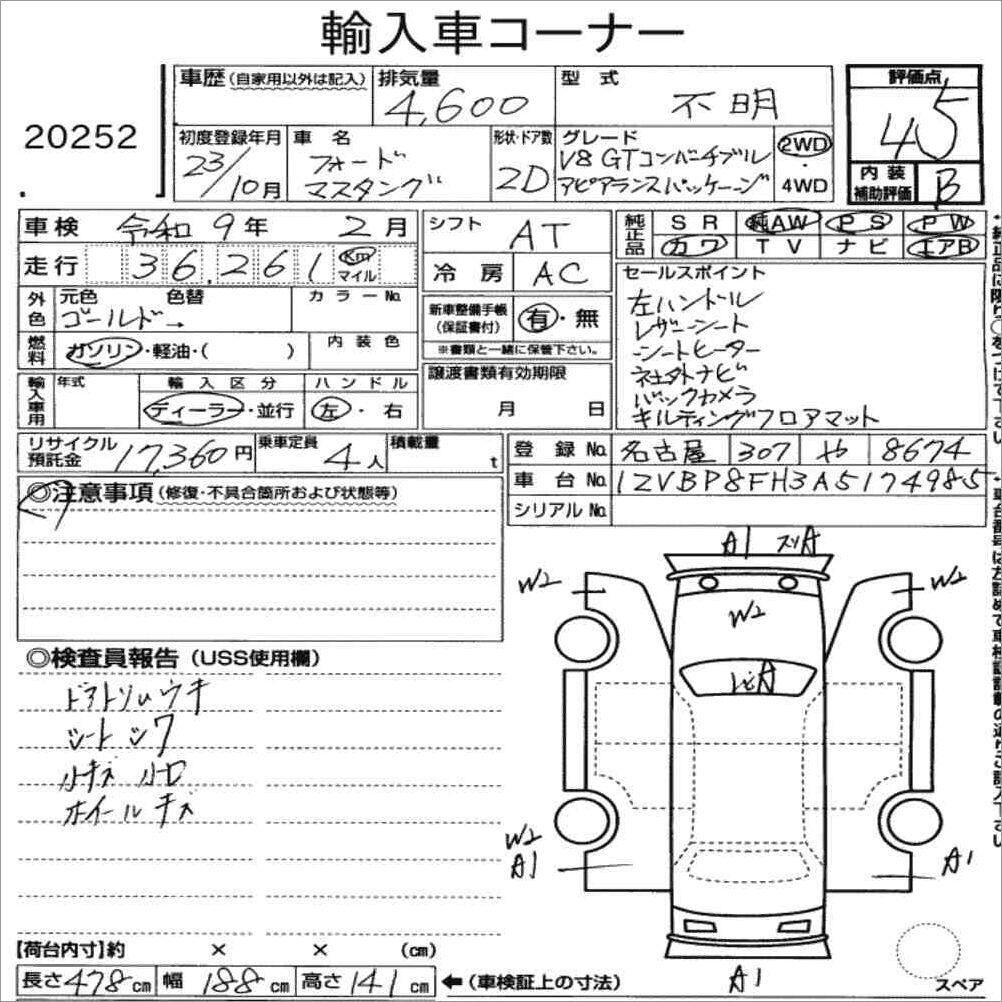 輸入車コーナー
20252
車歴(自家用以外は記入)
排気量
4,600
型 式
不明
評価点
4.5
初度登録年月
23/10月
車 名
フォード
マスタング
形状・ドア数
2D
グレード
V8 GTコンバーチブル
アピアランスパッケージ
2WD
・
4WD
内装
補助評価
B
車検 令和 9年 2月
シフト
AT
純正品
SR 純AW PS PW
カワ TV ナビ エアB
走行 36,261 Km マイル
冷房
AC
セールスポイント
左ハンドル
レザーシート
シートヒーター
社外ナビ
バックカメラ
キルティングフロアマット
外色
元色 色替
ゴールド→
カラーNo.
新車整備手帳
(保証書付)
有・無
※書類と一緒に保管下さい。
燃料
ガソリン・軽油・( )
内装色
輸入車用
年式
輸入区分
ディーラー・並行
ハンドル
左・右
譲渡書類有効期限
月 日
リサイクル
預託金
17,360円
乗車定員
4人
積載量
t
登録No. 名古屋 307 や 8674
車台No. 1ZVBP8FH3A5174985
シリアルNo.
◎注意事項(修復・不具合箇所および状態等)
◎検査員報告(USS使用欄)
ドアトリムウキ
シートシワ
小キズ 小凹
ホイールキズ
A1 スリA
W2
W2
W2
W2
A1
A1
A1
スペア
【荷台内寸】約 × × (cm)
長さ478cm 幅188cm 高さ141cm
←(車検証上の寸法)